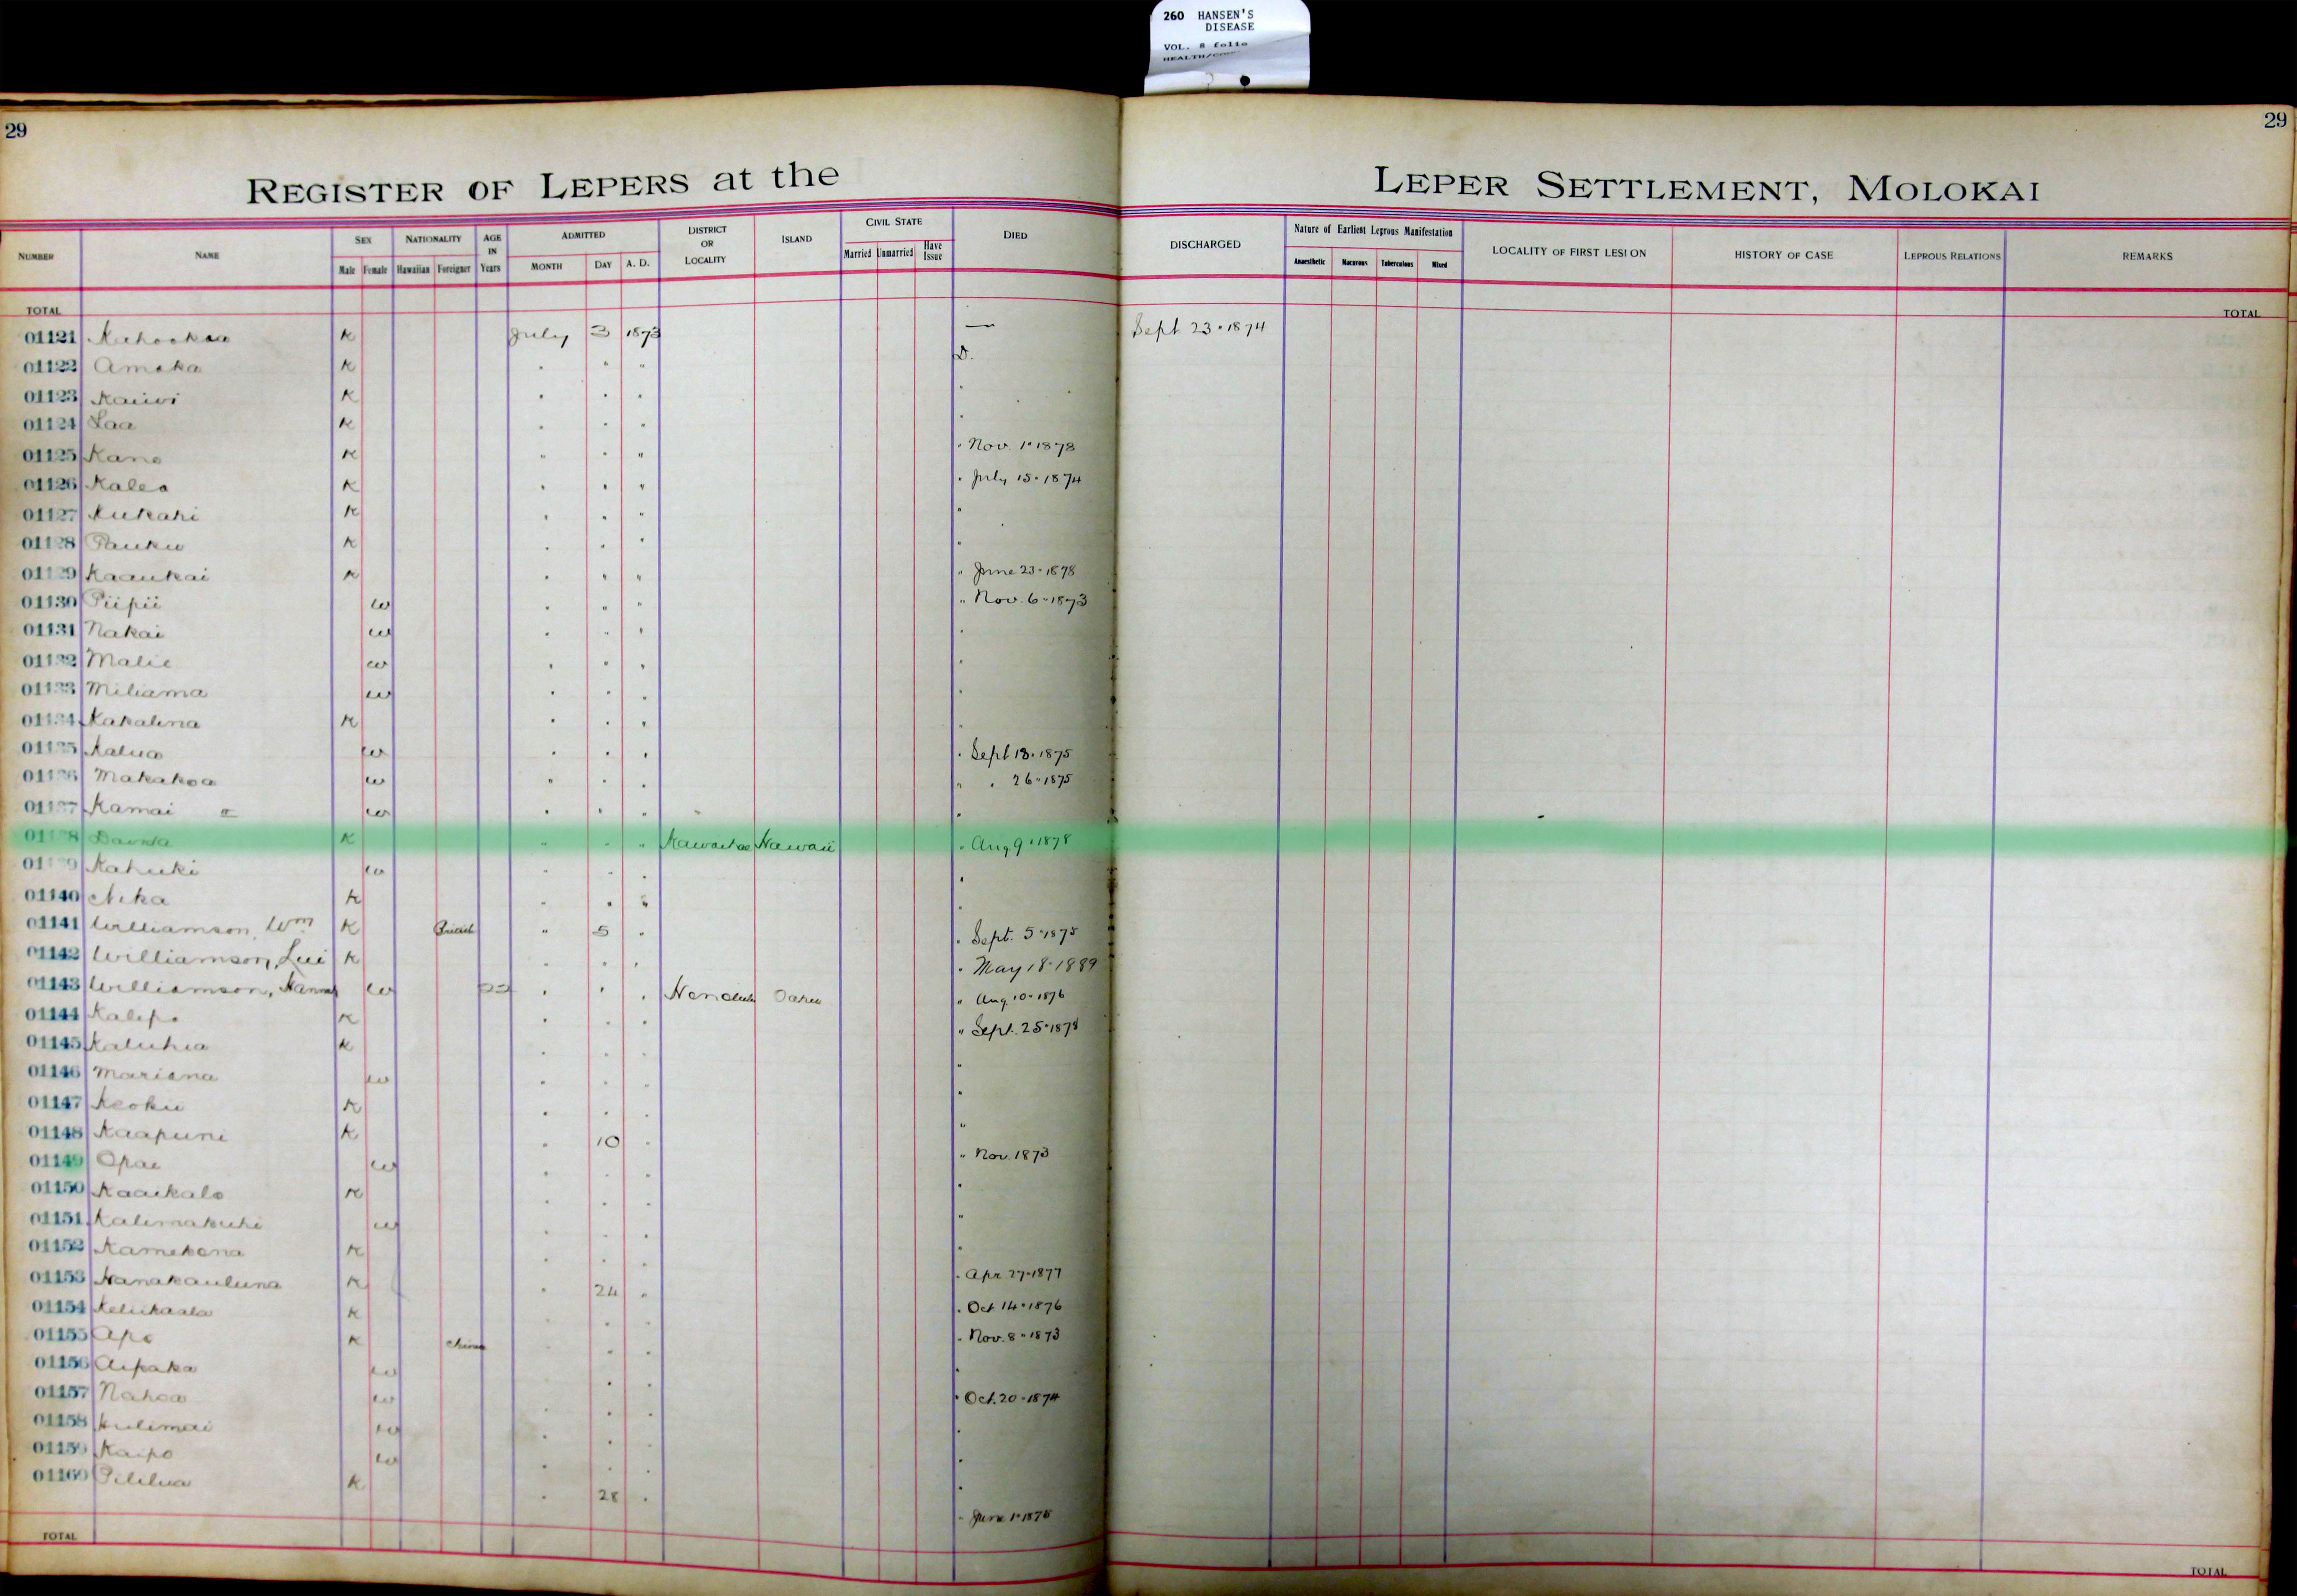 260 HANSEN'S
DISEASE
VOL. 8 folio
29
29
REGISTER OF LEPERS at the LEPER SETTLEMENT, MOLOKAI
NUMBER NAME SEX NATIONALITY AGE IN Years ADMITTED DISTRICT OR LOCALITY ISLAND CIVIL STATE DIED DISCHARGED Nature of Earliest Leprous Manifestation LOCALITY OF FIRST LESION HISTORY OF CASE LEPROUS RELATIONS REMARKS
Male Female Hawaiian Foreigner MONTH DAY A. D. Married Unmarried Have Issue Anaesthetic Macurous Tuberculous Mixed
TOTAL TOTAL
01121 K July 3 1873 — Sept 23 · 1874
01122 Amaka K " " " D.
01123 Kaiwi K " " " "
01124 Laa K " " " "
01125 Kane K " " " " Nov. 1 · 1878
01126 Kalea K " " " " July 15 · 1874
01127 Kukahi K " " " "
01128 Pauku K " " " "
01129 Kaaukai K " " " " June 23 · 1878
01130 Piipii w " " " " Nov. 6 · 1873
01131 Nakai w " " " "
01132 Malie w " " " "
01133 Miliama w " " " "
01134 Kakalina K " " " "
01135 Kalua w " " " " Sept 18 · 1875
01136 Makakoa w " " " " " 26 · 1875
01137 Kamai w " " " "
01138 K " " " Kawaihae Hawaii " Aug 9 · 1878
01139 Kahuki w " " " "
01140 Nika K " " " "
01141 Williamson, Wm K British " 5 " " Sept. 5 · 1875
01142 Williamson, Lui K " " " " May 18 · 1889
01143 Williamson, Hannah w " " " Honolulu Oahu " Aug. 10 · 1876
01144 Kalepo K " " " " Sept. 25 · 1878
01145 Kaluhia K " " " "
01146 Mariana w " " " "
01147 Keoku K " " " "
01148 Kaapuni K " 10 " "
01149 Opae w " " " " Nov. 1873
01150 Kaaikalo K " " " "
01151 Kalimakuhi w " " " "
01152 Kamekona K " " " "
01153 Nanakauluna K " 24 " " Apr 27 · 1877
01154 Keliikaala K " " " " Oct 14 · 1876
01155 Apo K China " " " " Nov. 8 · 1873
01156 Aipaka w " " " "
01157 Nahoa w " " " " Oct. 20 · 1874
01158 Kulimai w " " " "
01159 Kaipo w " " " "
01160 Pililua K " 28 " " June 1 · 1875
TOTAL TOTAL